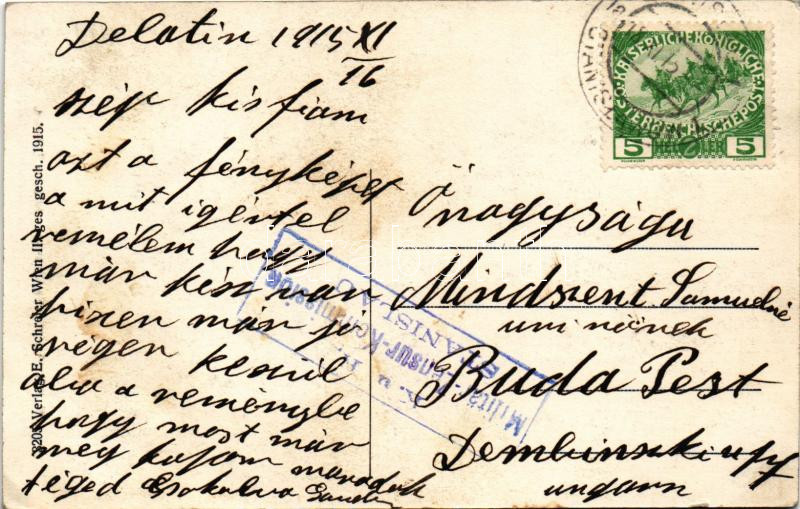 Delatin 1915 XI/16
szép kis fiam
azt a fényképet
a mit igértel
remélem hogy
már kész van
hiszen már jó
régen készül
abba a reménybe
hogy most már
meg kapom maradok
téged csokolva
Önagysága
Mindszent Samudné
uri nönek
Buda Pest
Dembinszki u
ungarn
KAISERLICHE KÖNIGLICHE
ÖSTERREICHISCHE POST
5 HELLER 5
STANISLAU
K. u. K.
Militär-Zensur-Kommission
STANISLAU
Verlag E. Schreier Wien III. ges gesch. 1915.